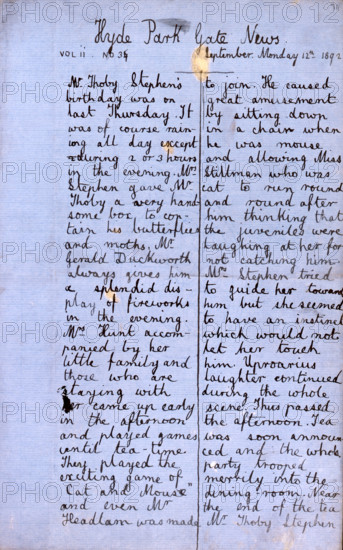 Hyde Park Gate News
VOL ii No 35 September. Monday 12th 1892
Mr Thoby Stephen's
birthday was on
last Thursday. It
was of course rain-
ing all day except
during 2 or 3 hours
in the evening. Mrs
Stephen gave Mr
Thoby a very hand-
some box to con-
tain his butterflies
and moths. Mr
Gerald Duckworth
always gives him
a splendid dis-
play of fireworks
in the evening.
Mrs Hunt accom-
panied by her
little family and
those who are
staying with
her came up early
in the afternoon
and played games
until tea-time.
They played the
exciting game of
"Cat and Mouse"
and even Mr
Headlam was made
to join. He caused
great amusement
by sitting down
in a chair when
he was mouse
and allowing Miss
Stillman who was
cat to run round
and round after
him thinking that
the juveniles were
laughing at her for
not catching him.
Mrs Stephen tried
to guide her toward
him but she seemed
to have an instinct
which would not
let her touch
him. Uproarius
laughter continued
during the whole
scene. Thus passed
the afternoon. Tea
was soon announ-
ced and the whole
party trooped
merrily into the
dining-room. Near
the end of the tea
Mr Thoby Stephen